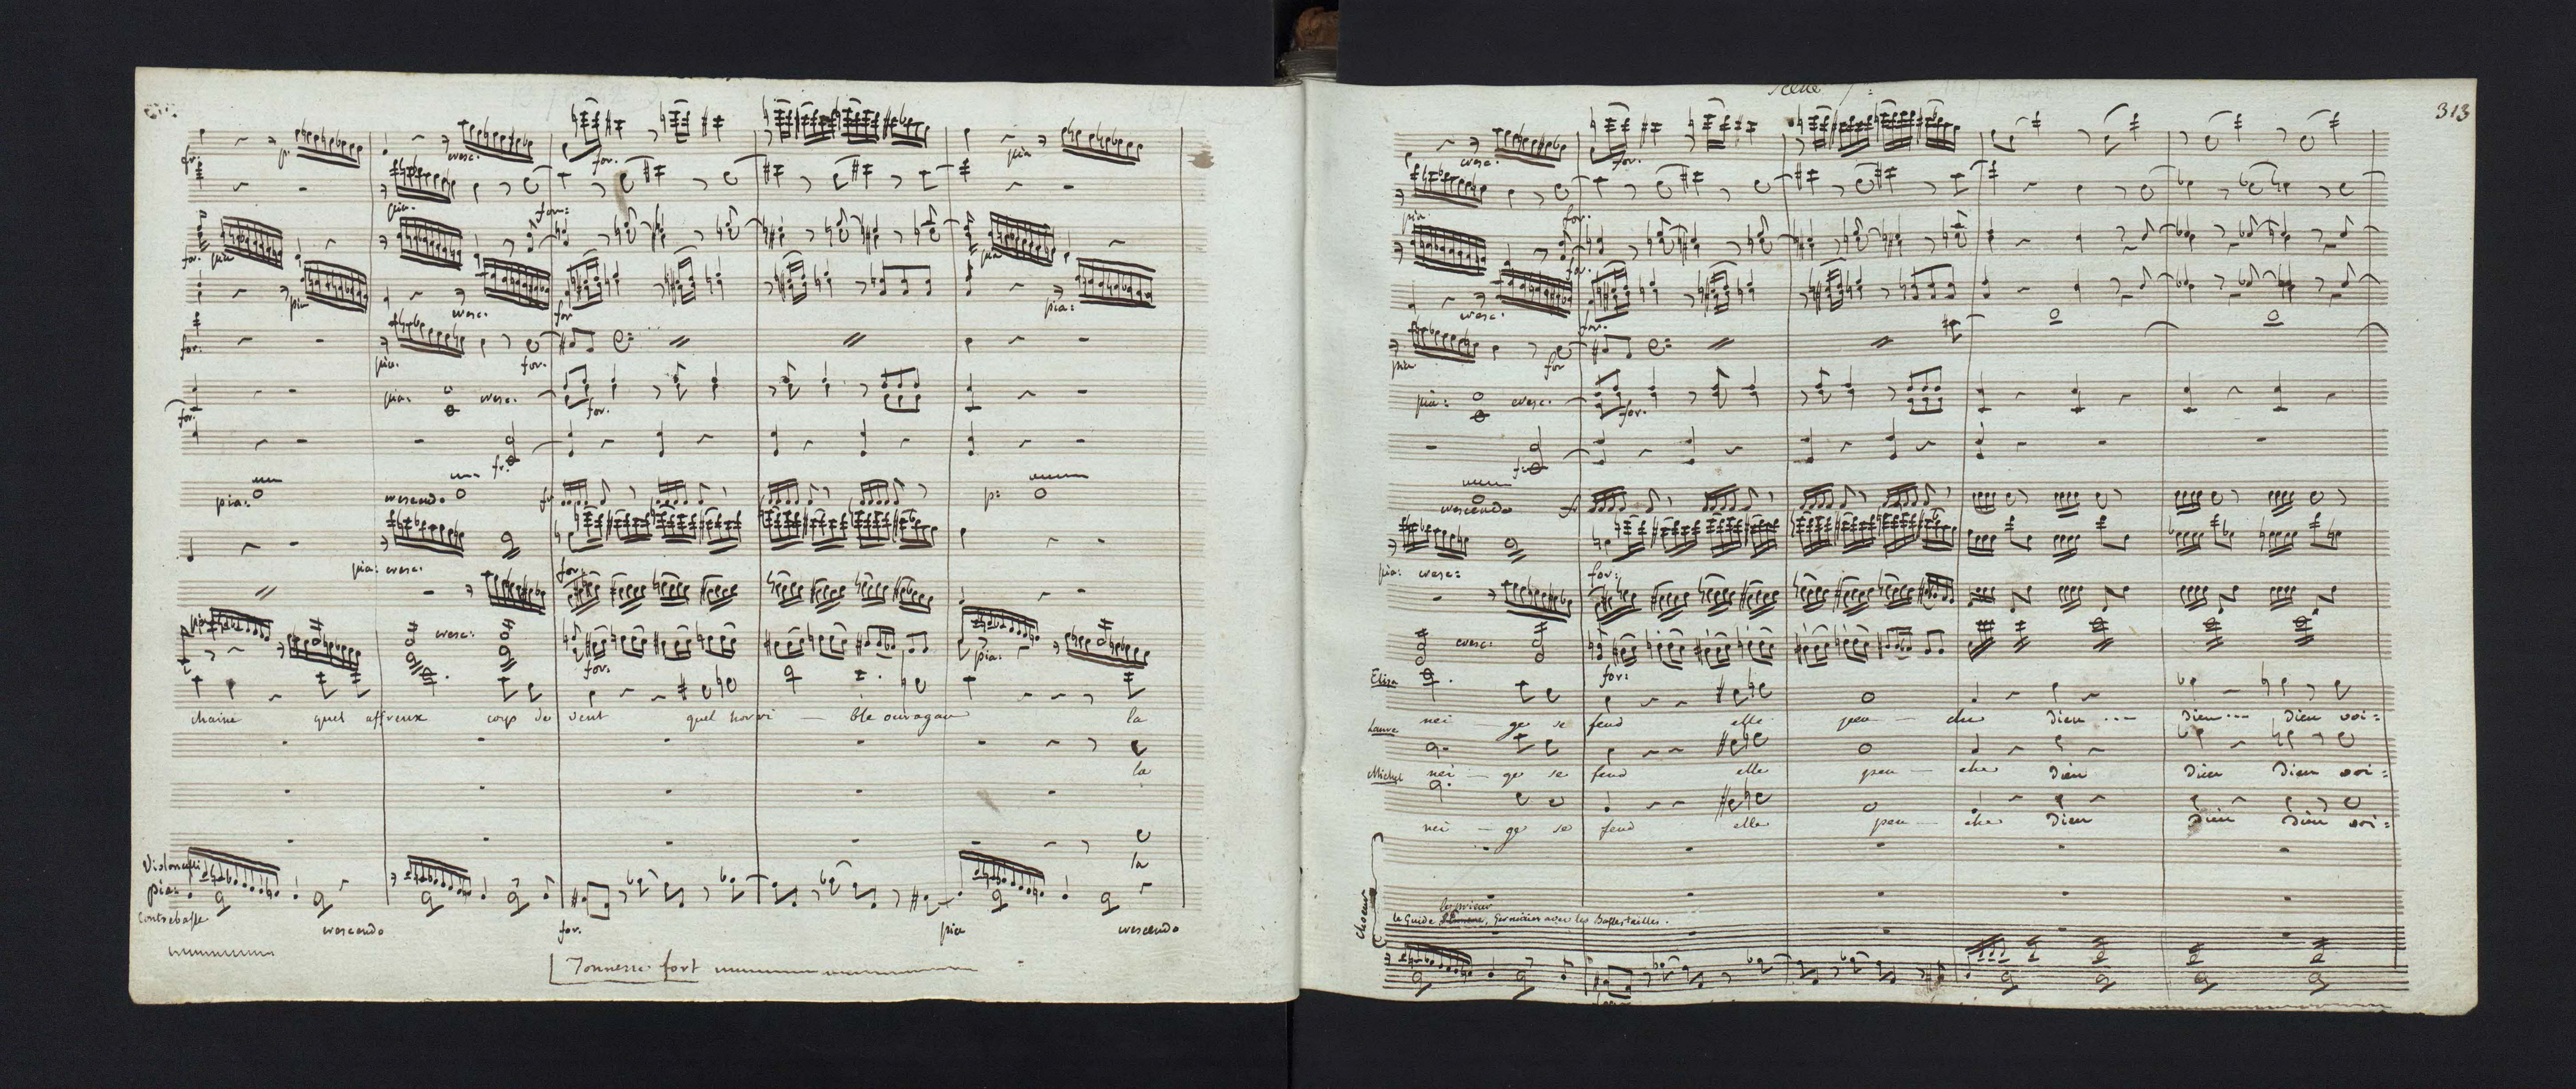 for. p. cresc. for. pia
pia. for:
for. pia pia
pia cresc. for pia:
for. pia. for.
for. pia: cresc. for.
fr.
pia: crescendo fr p:
pia: cresc. for.
pia cresc: for. pia.
chaine quel affreux coup de vent quel horri — ble ouragan la
la
la
Violoncelli
pia:
contrebasse
crescendo for. pia crescendo
Tonnerre fort
Scene
313
cresc. for.
pia. for.
for.
cresc. for.
pia for
pia: cresc. for.
fr
crescendo
pia: cresc: for:
cresc. for:
Elisa
nei — ge se fend elle pen — che Dieu ... Dieu ... Dieu voi =
Laure
nei — ge se fend elle pen — che Dieu Dieu Dieu voi =
Michel
nei — ge se fend elle pen — che Dieu Dieu Dieu voi =
choeur
le prieur
le Guide, Germain avec les Bassestailles.